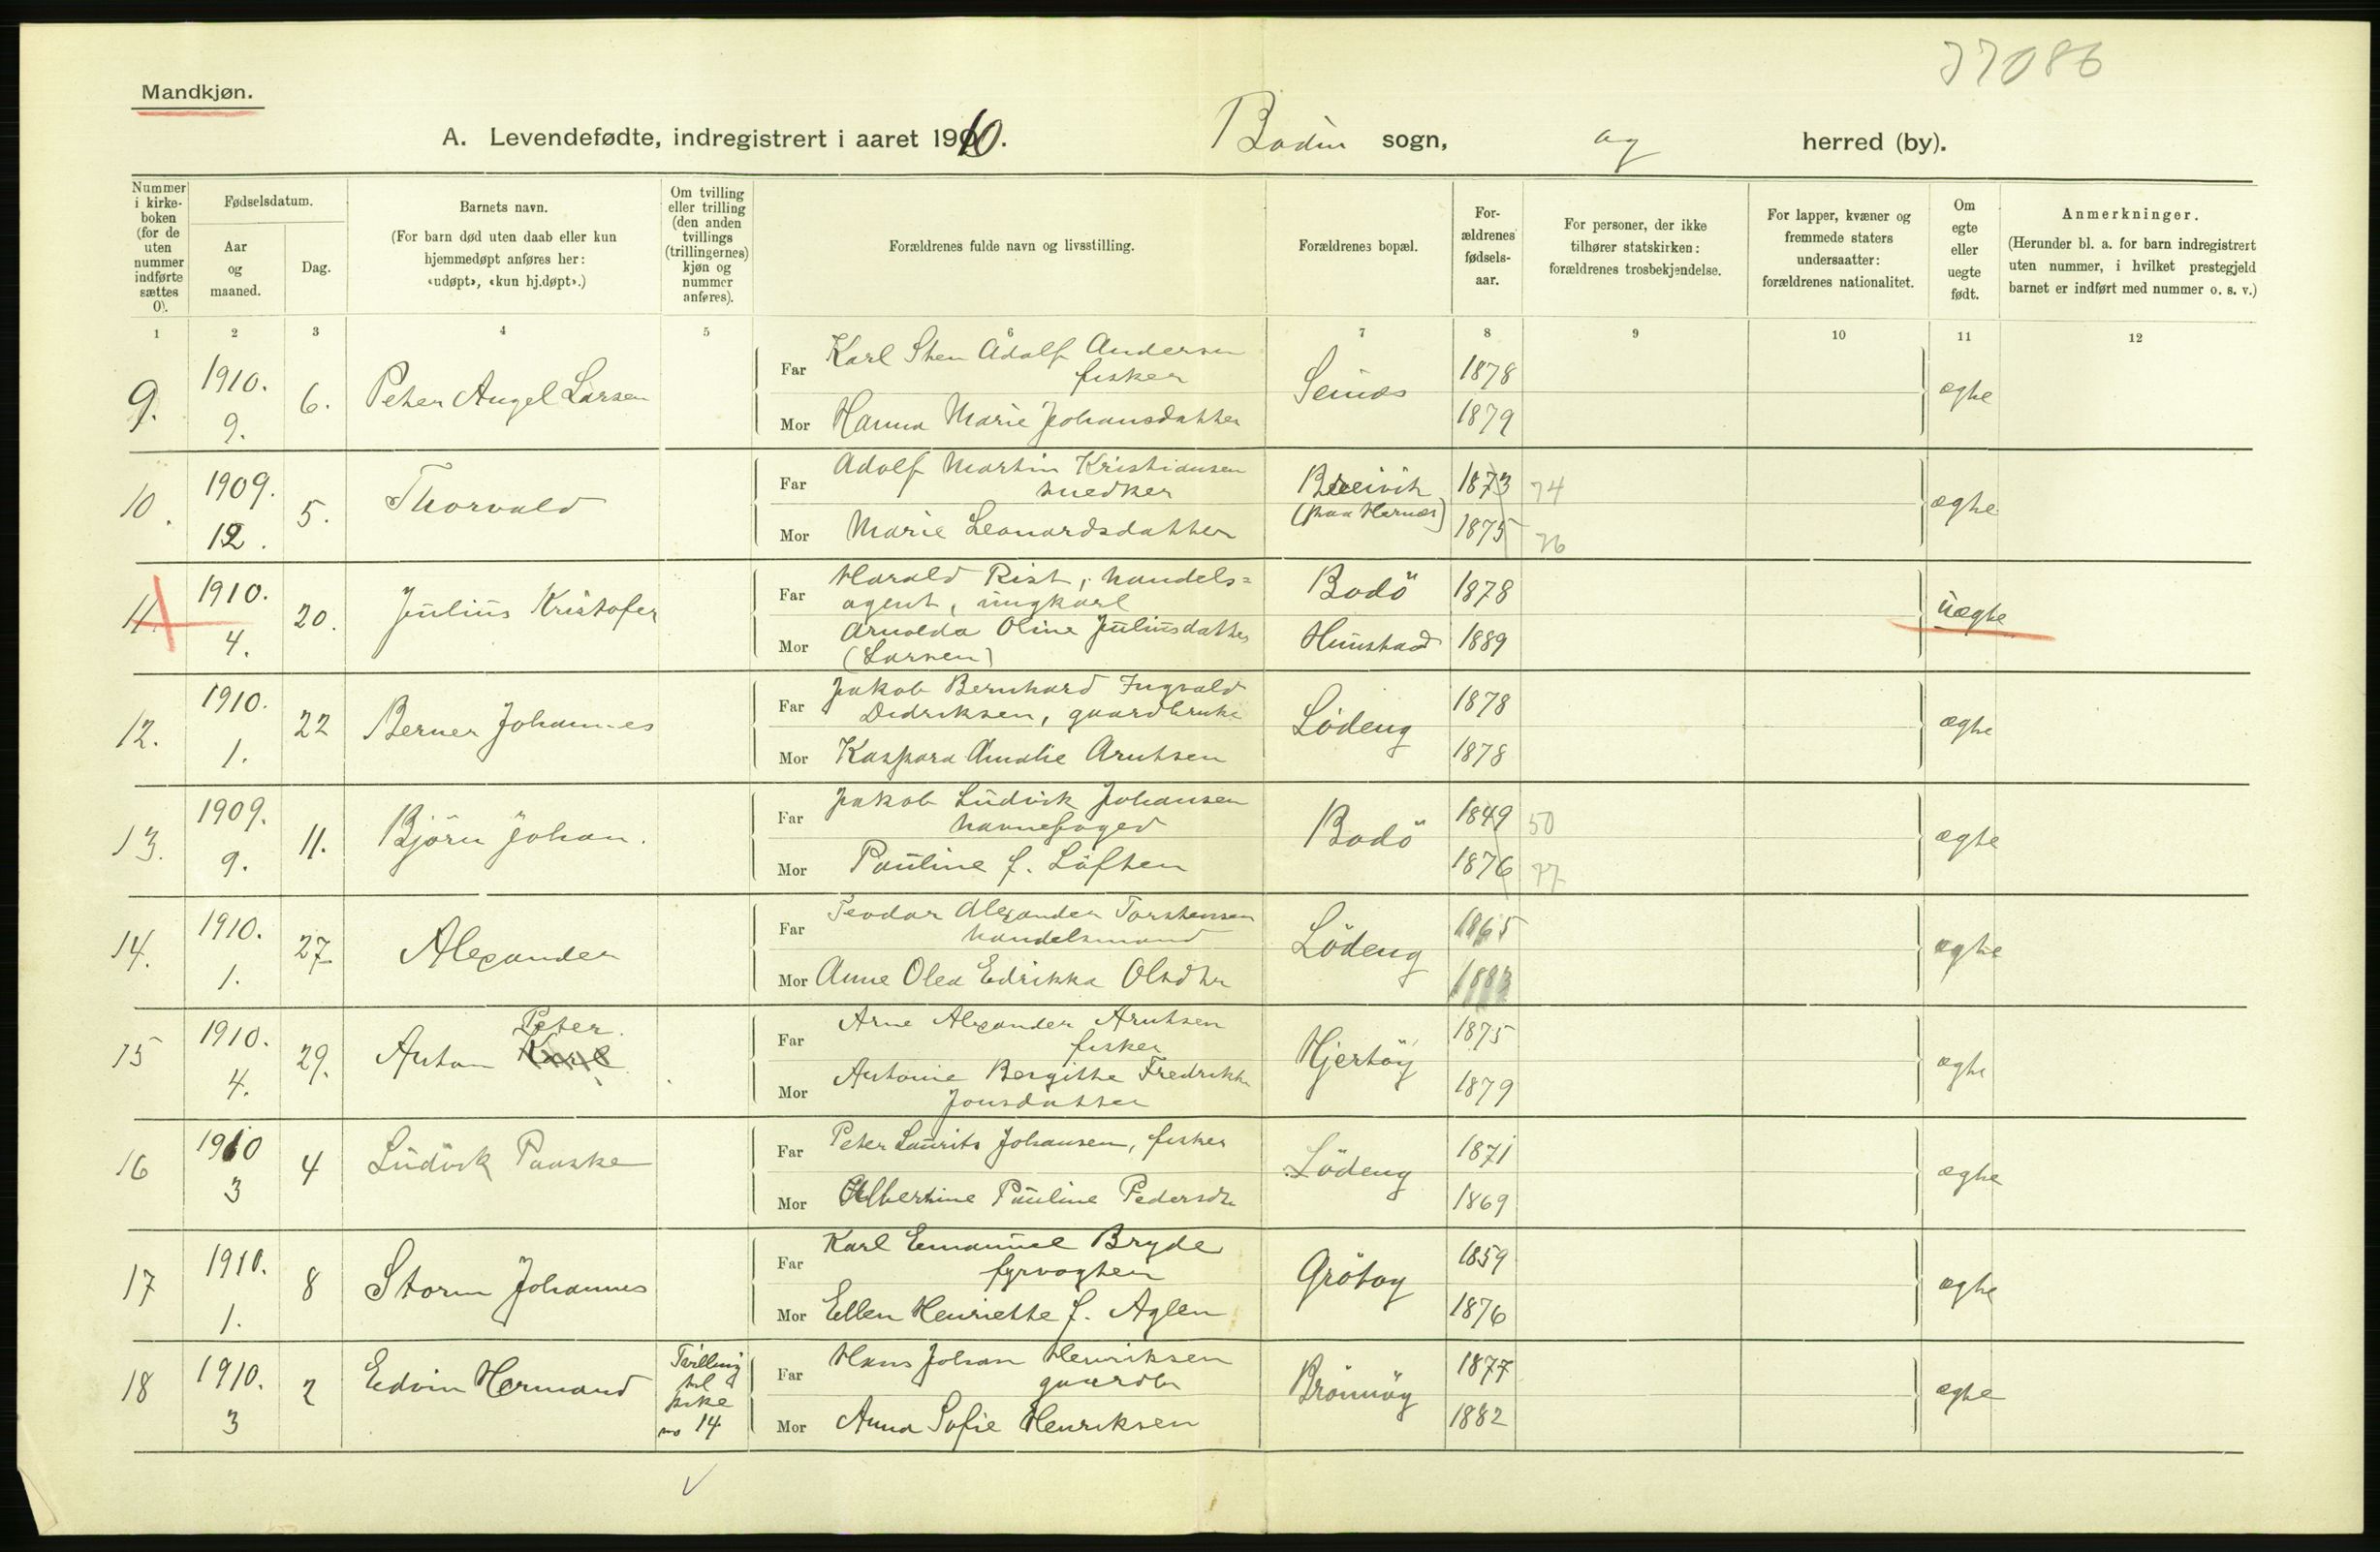 37086
Mandkjøn.
A. Levendefødte, indregistrert i aaret 1910. Bodin sogn, og herred (by).
Nummer i kirke-boken (for de uten nummer indførte sættes 0).
Fødselsdatum.
Aar og maaned.
Dag.
Barnets navn.
(For barn død uten daab eller kun hjemmedøpt anføres her: «udøpt», «kun hj.døpt».)
Om tvilling eller trilling (den anden tvillings (trillingernes) kjøn og nummer anføres).
Forældrenes fulde navn og livsstilling.
Forældrenes bopæl.
For-ældrenes fødsels-aar.
For personer, der ikke tilhører statskirken: forældrenes trosbekjendelse.
For lapper, kvæner og fremmede staters undersaatter: forældrenes nationalitet.
Om egte eller uegte født.
Anmerkninger.
(Herunder bl. a. for barn indregistrert uten nummer, i hvilket prestegjeld barnet er indført med nummer o. s. v.)
1 2 3 4 5 6 7 8 9 10 11 12
9. 1910. 9. 6. Peter Angel Larsen
Far Karl Sten Adolf Andersen
fisker
Mor Hanna Marie Johansdatter
Seinæs 1878 1879 ægte
10. 1909. 12. 5. Thorvald
Far Adolf Martin Kristiansen
snedker
Mor Marie Leonardsdatter
Breivik
(paa Hernæs)
1873 74 1875 76 ægte
11. 1910. 4. 20. Julius Kristofer
Far Harald Rist, handels=
agent, ungkarl
Mor Arnolda Oline Juliusdatter
(Larsen)
Bodö 1878
Hunstad 1889
uægte
12. 1910. 1. 22 Berner Johannes
Far Jakob Bernhard Ingvald
Didriksen, gaardbruke
Mor Kaspara Amalie Arntsen
Lödeng 1878 1878 ægte
13. 1909. 9. 11. Björn Johan.
Far Jakob Ludvik Johansen
havnefoged
Mor Pauline f. Löften
Bodö 1849 50 1876 77 ægte
14. 1910. 1. 27. Alexander
Far Teodor Alexander Torstensen
handelsmand
Mor Anne Olea Edrikka Olsdtr
Lödeng 1865 1883 ægte
15 1910. 4. 29. Anton Karl Peter.
Far Arne Alexander Arntsen
fisker
Mor Antonie Bergitte Fredrikke
Jonsdatter
Hjertöy 1875 1879 ægte
16 1910 3 4 Ludvik Paaske
Far Peter Laurits Johansen, fisker
Mor Albertine Pauline Pedersdtr
Lödeng 1871 1869 ægte
17 1910. 1. 8 Storm Johannes
Far Karl Emanuel Bryde
fyrvogter
Mor Ellen Henriette f. Aglen
Grötoy 1859 1876 ægte
18 1910. 3 2 Edvin Hermand
Tvilling
til
pike
no 14
Far Hans Johan Henriksen
gaardbr
Mor Anna Sofie Henriksen
Brönnöy 1877 1882 ægte